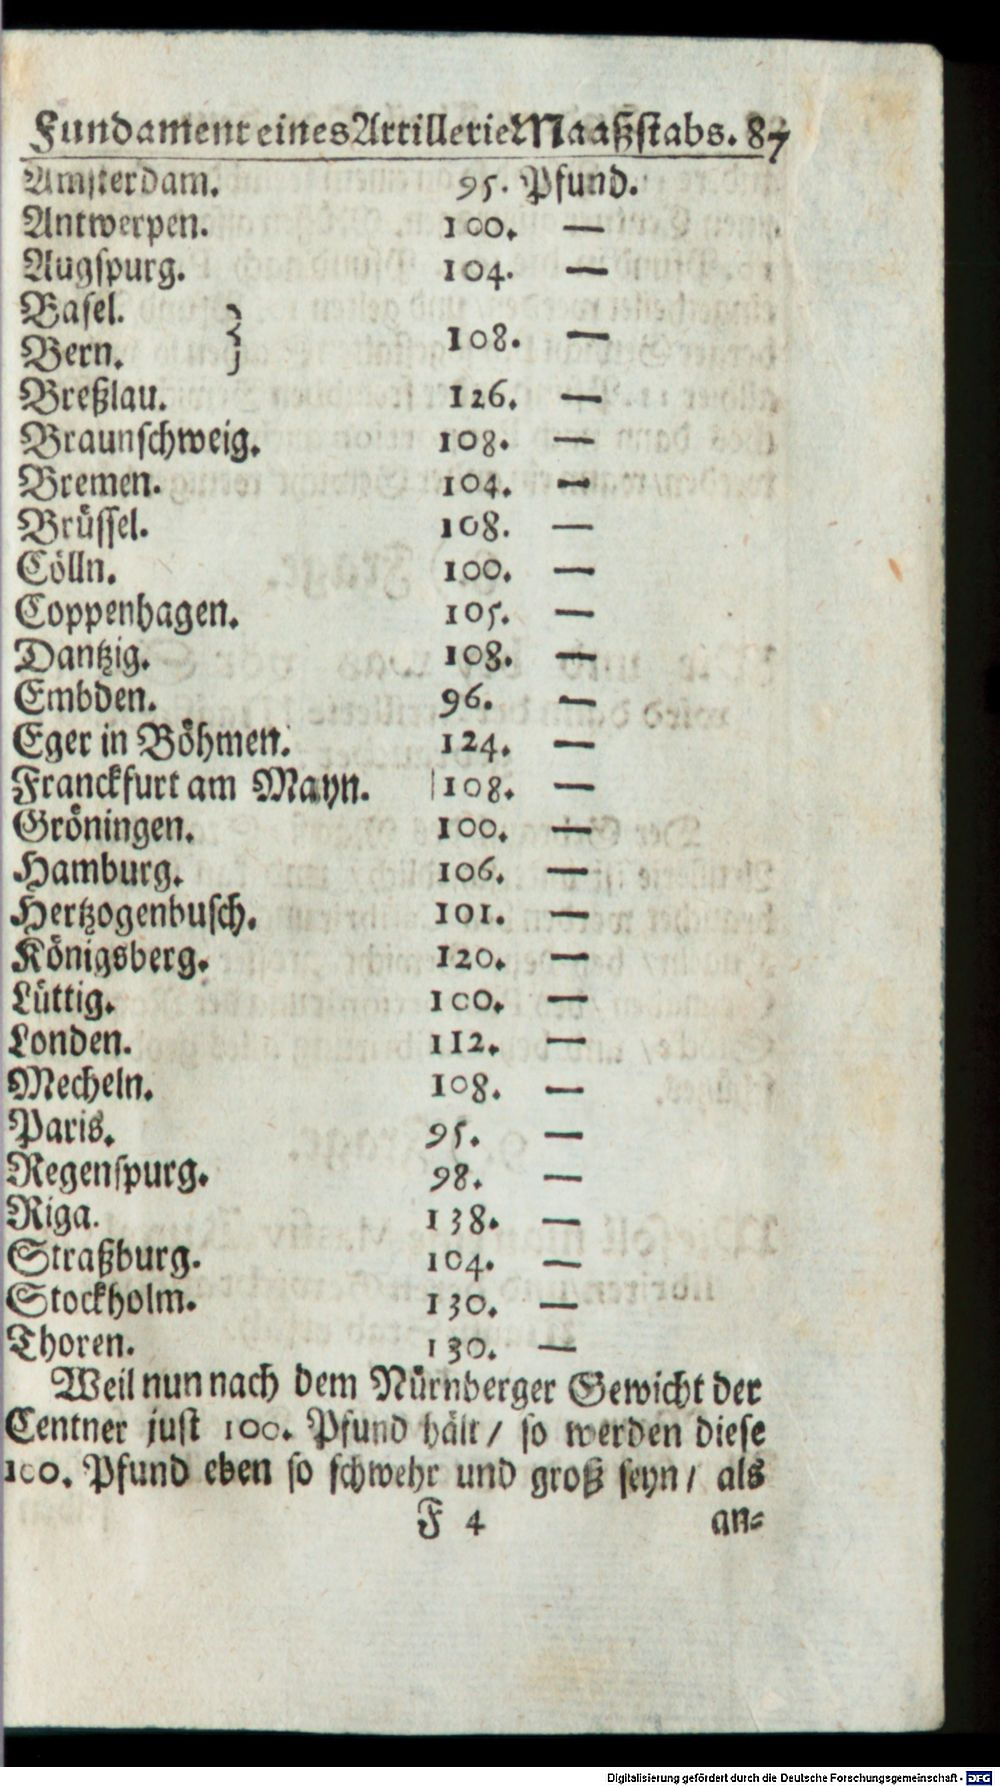 Fundament eines Artillerie Maaßstabs. 87
Amsterdam. 95. Pfund.
Antwerpen. 100. —
Augspurg. 104. —
Basel.
Bern. } 108. —
Breßlau. 126. —
Braunschweig. 108. —
Bremen. 104. —
Brüssel. 108. —
Cölln. 100. —
Coppenhagen. 105. —
Dantzig. 108. —
Embden. 96. —
Eger in Böhmen. 124. —
Franckfurt am Mayn. 108. —
Gröningen. 100. —
Hamburg. 106. —
Hertzogenbusch. 101. —
Königsberg. 120. —
Lüttig. 100. —
Londen. 112. —
Mecheln. 108. —
Paris. 95. —
Regenspurg. 98. —
Riga. 138. —
Straßburg. 104. —
Stockholm. 130. —
Thoren. 130. —
Weil nun nach dem Nürnberger Gewicht der
Centner just 100. Pfund hält / so werden diese
100. Pfund eben so schwehr und groß seyn / als
F 4 an-
Digitalisierung gefördert durch die Deutsche Forschungsgemeinschaft - DFG